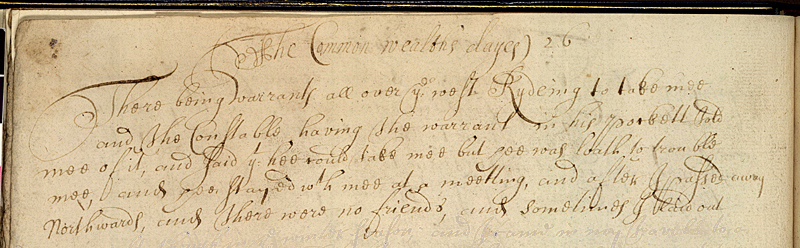 The Common wealths dayes) 26
There being warrants all over ye west Rydeing to take mee
and the Constable having the warrant in his pockett told
mee of it, and said yt hee could take mee but hee was loath to trouble
mee, and hee stayed wth mee at a meetting, and after I passed away
Northwards, and there were no friends, and sometimes I laid out